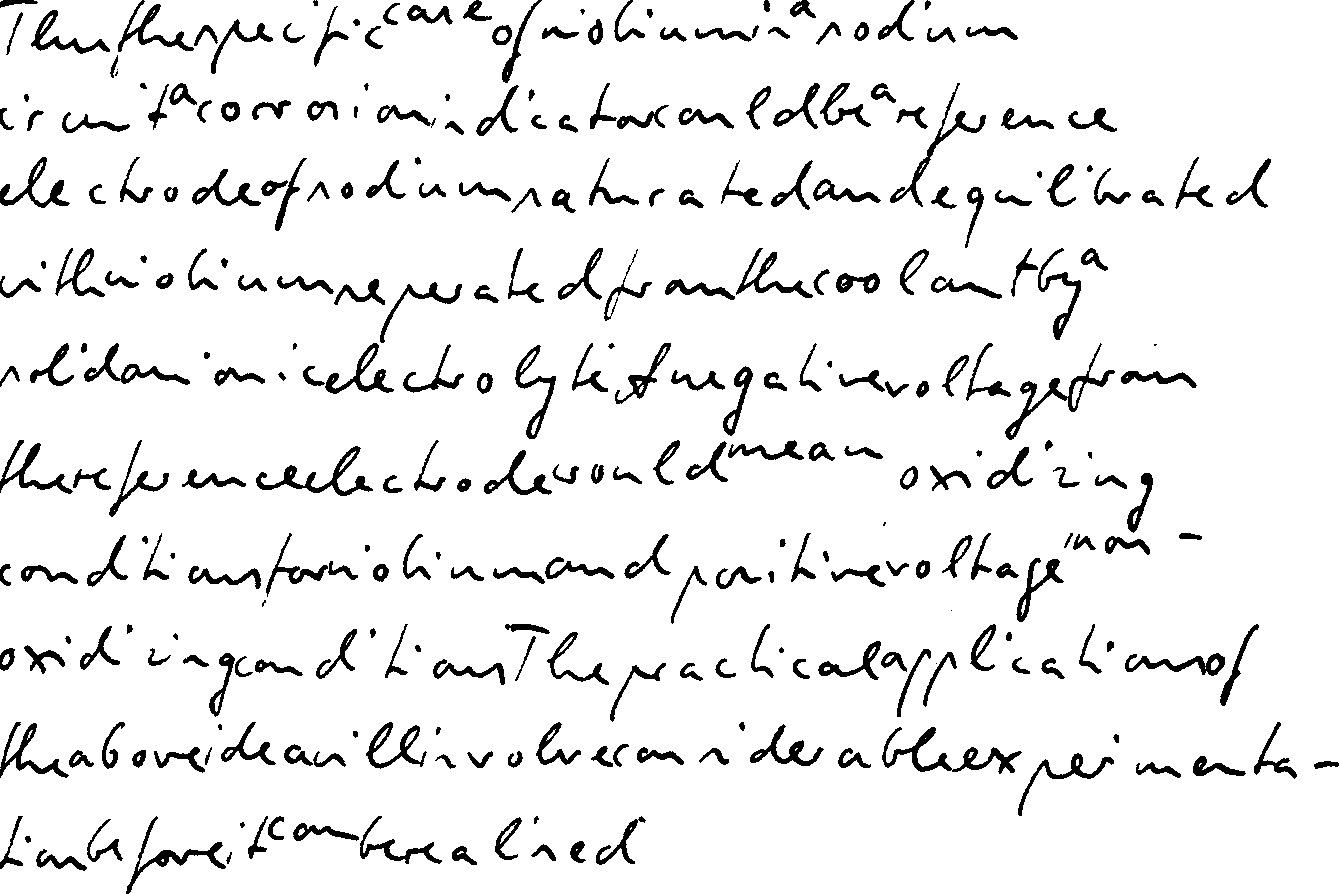 Thus for the specific case of niobium in a sodium
circuit a corrosion indicator could be a reference
electrode of sodium saturated and equilibrated
with niobium seperated from the coolant by a
solid anionic electrolyte. A negative voltage from
the reference electrode would mean oxidizing
conditions for niobium and positive voltage non-
oxidizing conditions The practical applications of
the above idea will involve considerable experimenta-
tion before it can be realised